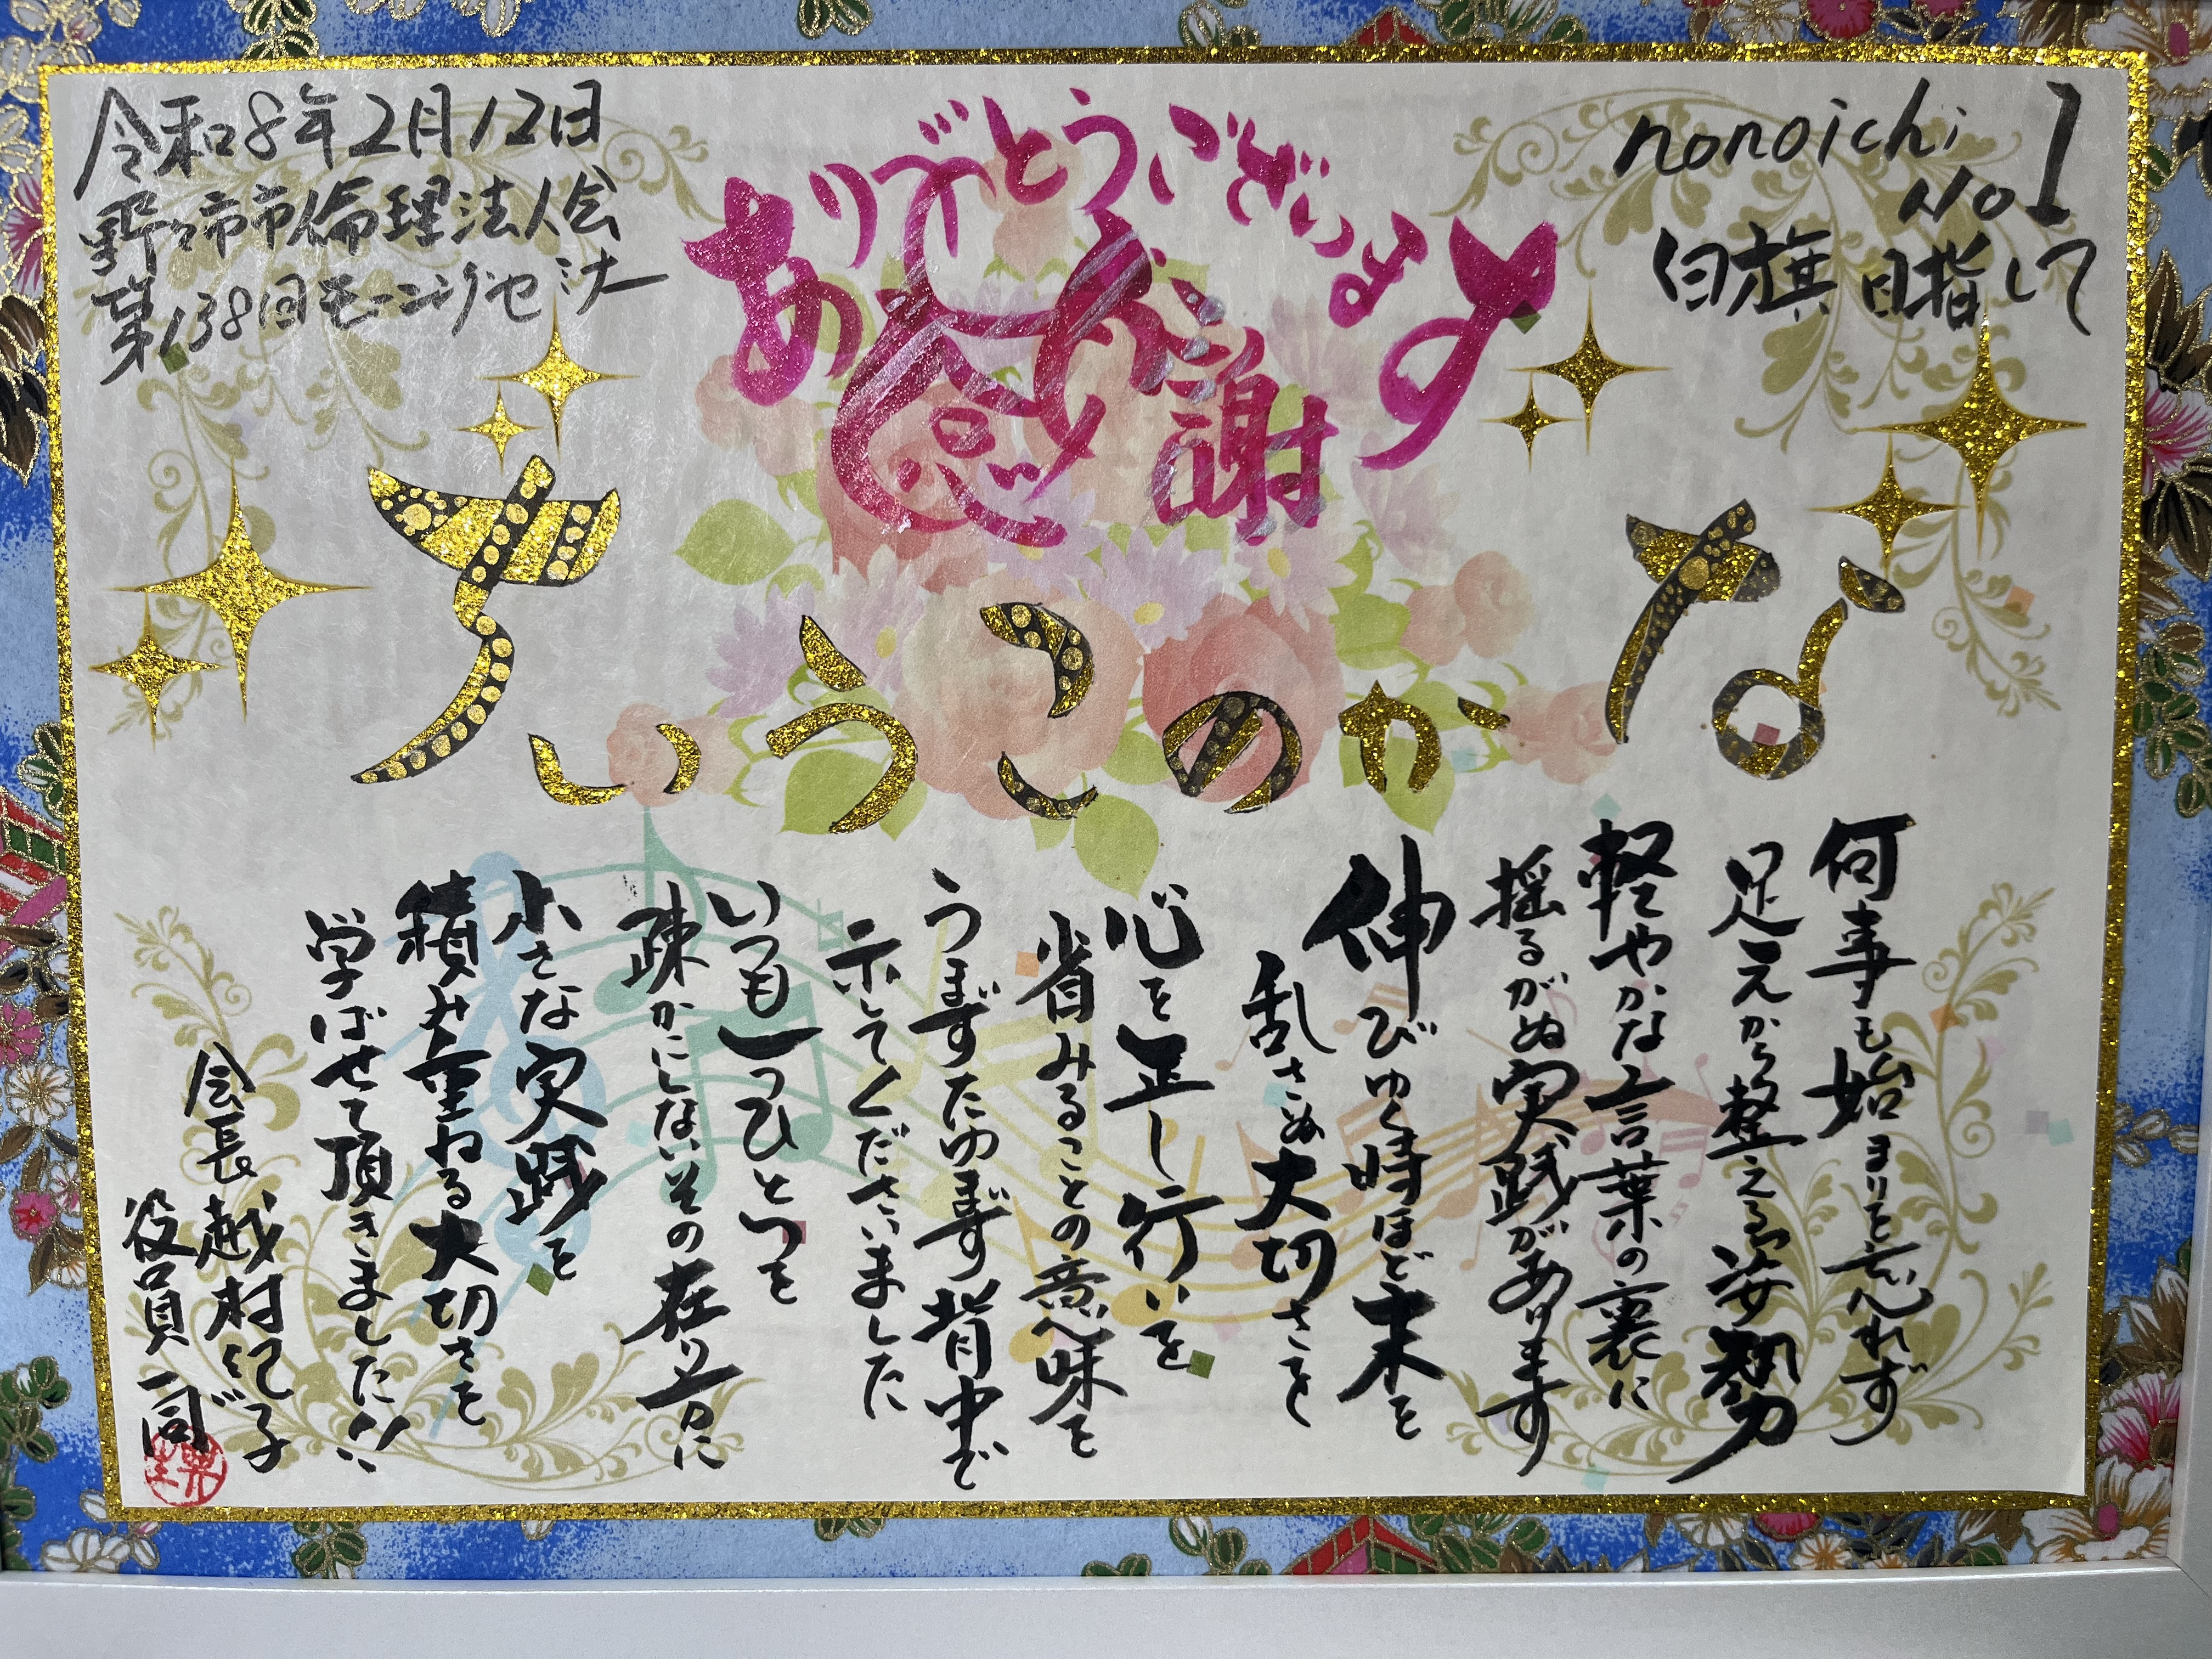 令和8年2月12日
野々市市倫理法人会
第138回モーニングセミナー
ありがとうございます
感謝
nonoichi
No 1
白旗目指して
なかのこういち
何事も始まりを忘れず
足元から整える姿勢
軽やかな言葉の裏に
揺るがぬ実践があります
伸びゆく時ほど末を
乱さぬ大切さを
心を正し行いを
省みることの意味を
うまずたゆまず背中で
示してくださいました
いつも一つひとつを
疎かにしないその在り方に
小さな実践を
積み重ねる大切さを
学ばせて頂きました!!
会長 越村紀子
役員一同